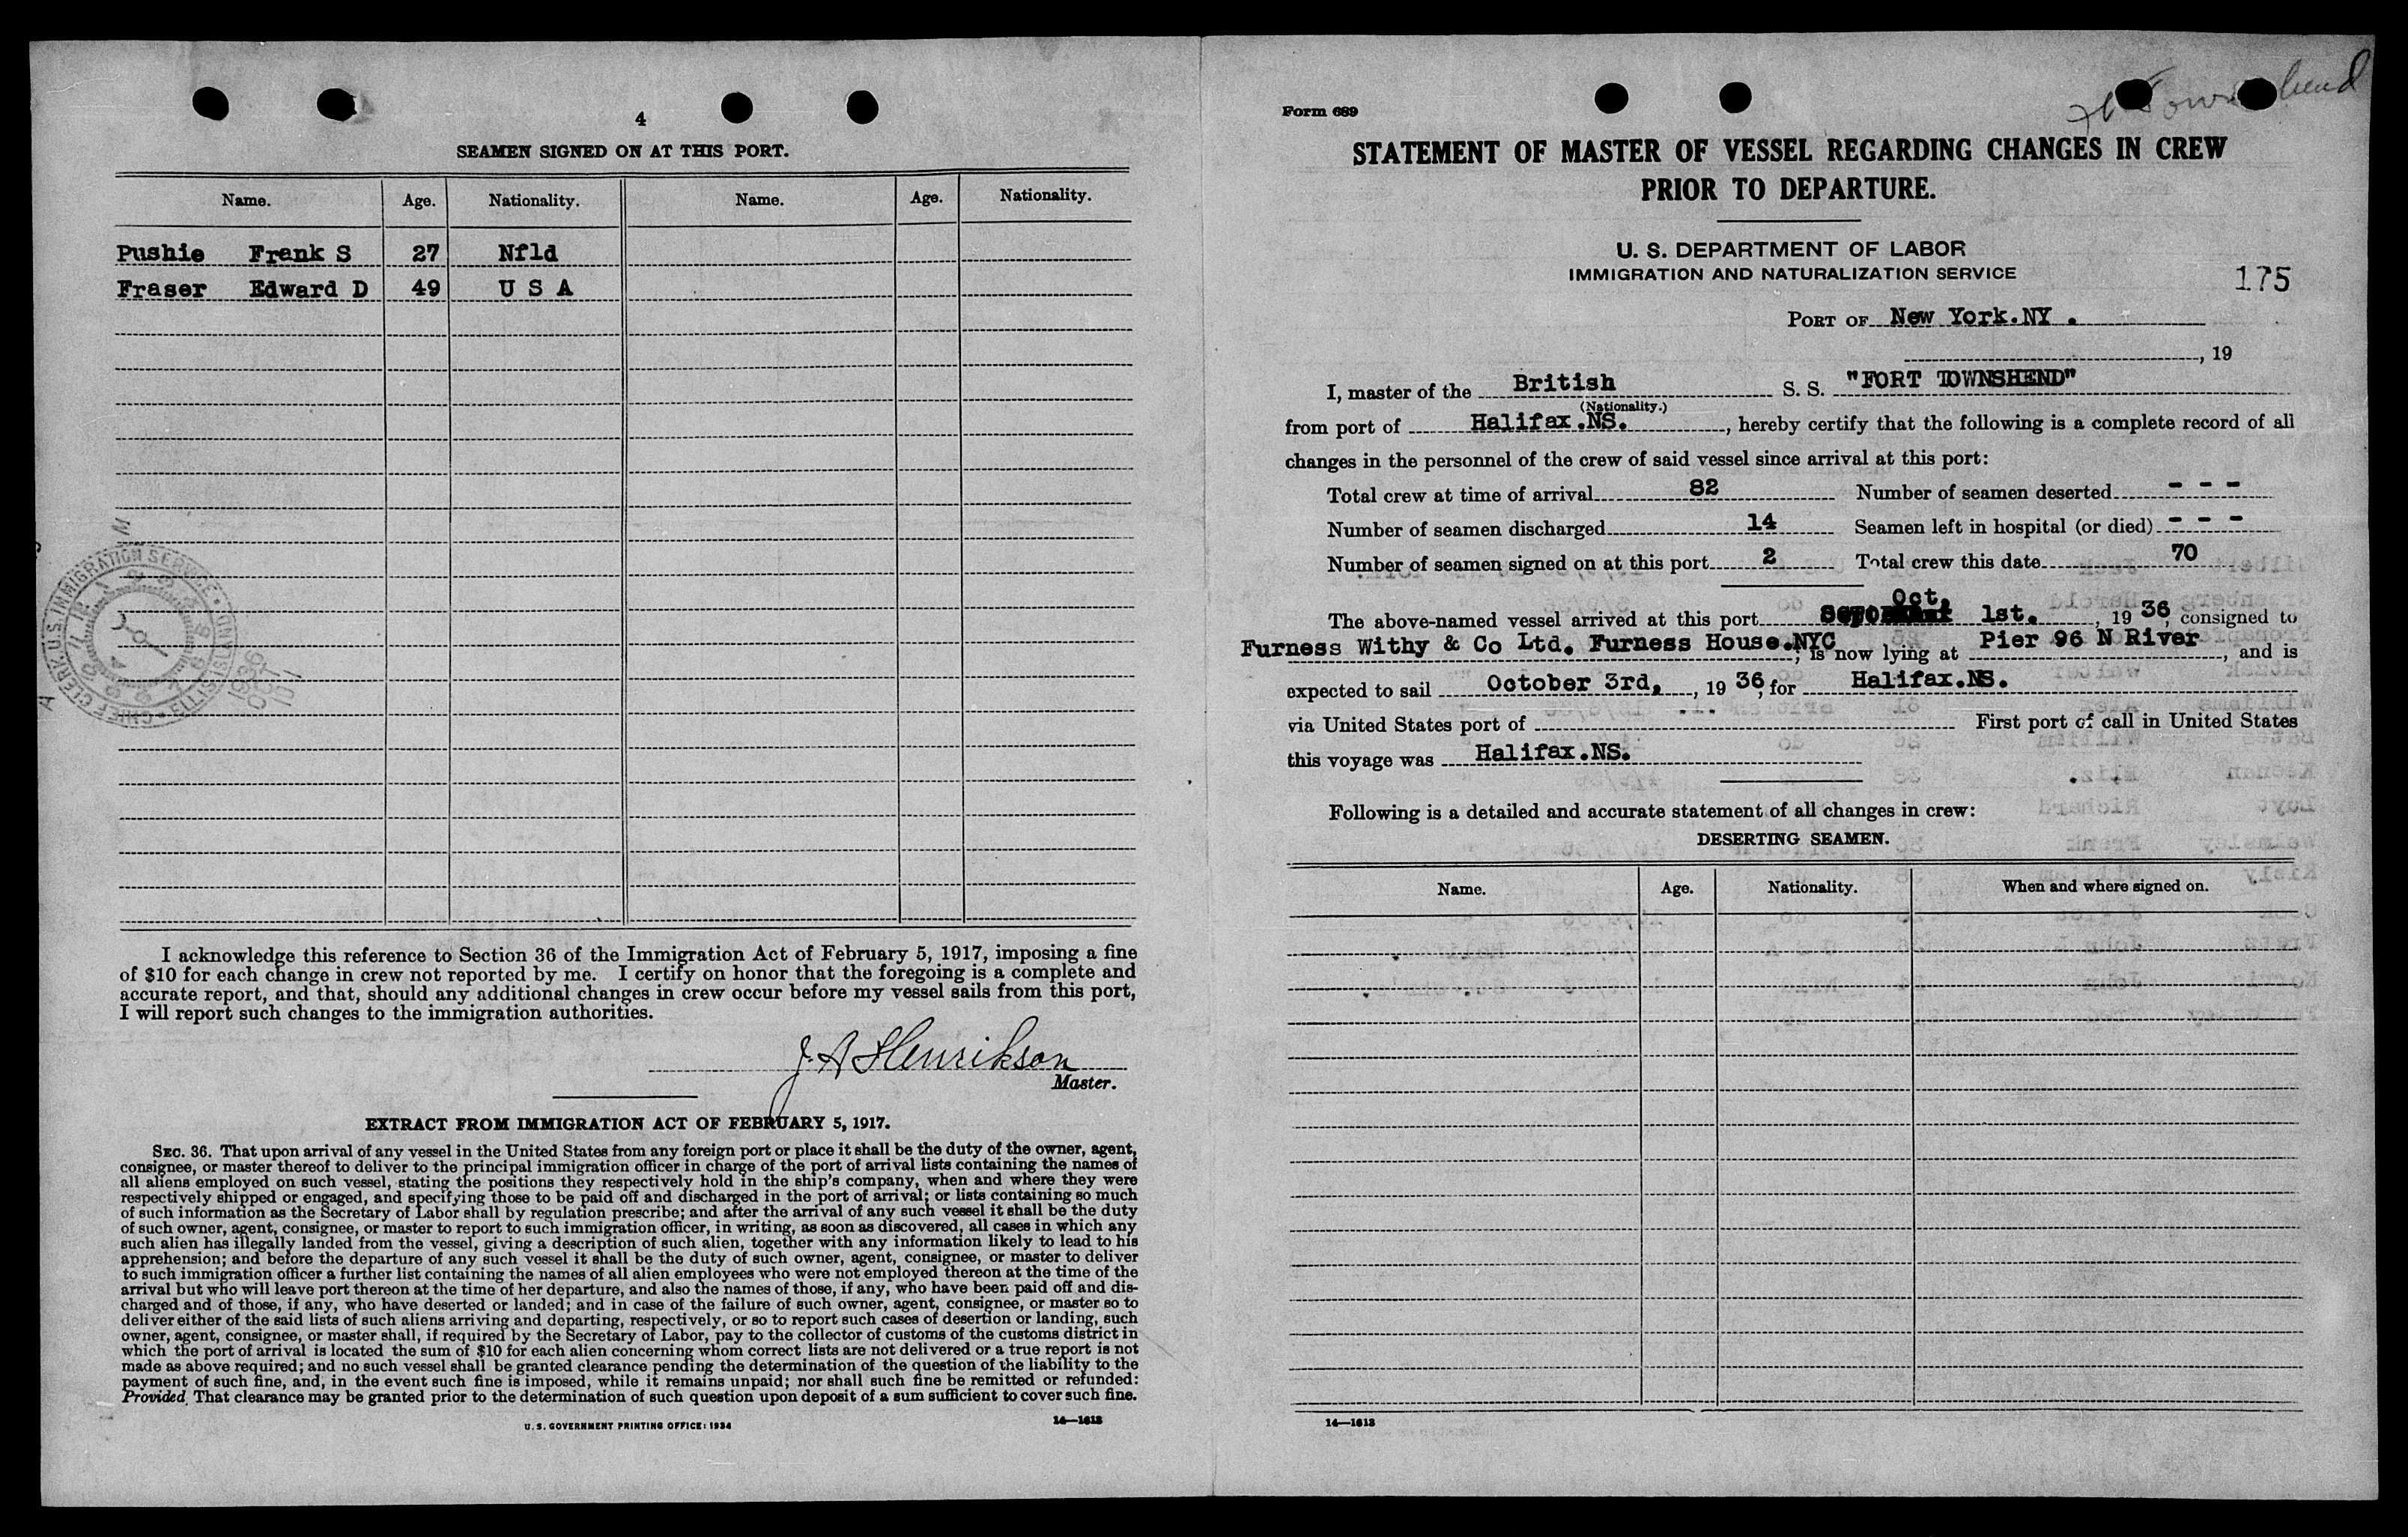 4
SEAMEN SIGNED ON AT THIS PORT.
Name. Age. Nationality. Name. Age. Nationality.
Pushie Frank S 27 Nfld
Fraser Edward D 49 U S A
CHIEF CLERK, U.S. IMMIGRATION SERVICE • ELLIS ISLAND
I acknowledge this reference to Section 36 of the Immigration Act of February 5, 1917, imposing a fine
of $10 for each change in crew not reported by me. I certify on honor that the foregoing is a complete and
accurate report, and that, should any additional changes in crew occur before my vessel sails from this port,
I will report such changes to the immigration authorities.
J. A Henrikson
Master.
EXTRACT FROM IMMIGRATION ACT OF FEBRUARY 5, 1917.
SEC. 36. That upon arrival of any vessel in the United States from any foreign port or place it shall be the duty of the owner, agent,
consignee, or master thereof to deliver to the principal immigration officer in charge of the port of arrival lists containing the names of
all aliens employed on such vessel, stating the positions they respectively hold in the ship's company, when and where they were
respectively shipped or engaged, and specifying those to be paid off and discharged in the port of arrival; or lists containing so much
of such information as the Secretary of Labor shall by regulation prescribe; and after the arrival of any such vessel it shall be the duty
of such owner, agent, consignee, or master to report to such immigration officer, in writing, as soon as discovered, all cases in which any
such alien has illegally landed from the vessel, giving a description of such alien, together with any information likely to lead to his
apprehension; and before the departure of any such vessel it shall be the duty of such owner, agent, consignee, or master to deliver
to such immigration officer a further list containing the names of all alien employees who were not employed thereon at the time of the
arrival but who will leave port thereon at the time of her departure, and also the names of those, if any, who have been paid off and dis-
charged and of those, if any, who have deserted or landed; and in case of the failure of such owner, agent, consignee, or master so to
deliver either of the said lists of such aliens arriving and departing, respectively, or so to report such cases of desertion or landing, such
owner, agent, consignee, or master shall, if required by the Secretary of Labor, pay to the collector of customs of the customs district in
which the port of arrival is located the sum of $10 for each alien concerning whom correct lists are not delivered or a true report is not
made as above required; and no such vessel shall be granted clearance pending the determination of the question of the liability to the
payment of such fine, and, in the event such fine is imposed, while it remains unpaid; nor shall such fine be remitted or refunded:
Provided, That clearance may be granted prior to the determination of such question upon deposit of a sum sufficient to cover such fine.
U. S. GOVERNMENT PRINTING OFFICE: 1934 14—1613
Form 689
STATEMENT OF MASTER OF VESSEL REGARDING CHANGES IN CREW
PRIOR TO DEPARTURE.
U. S. DEPARTMENT OF LABOR
IMMIGRATION AND NATURALIZATION SERVICE
175
PORT OF New York.NY .
, 19
I, master of the British S. S. "FORT TOWNSHEND"
(Nationality.)
from port of Halifax.NS. , hereby certify that the following is a complete record of all
changes in the personnel of the crew of said vessel since arrival at this port:
Total crew at time of arrival 82 Number of seamen deserted - - -
Number of seamen discharged 14 Seamen left in hospital (or died) - - -
Number of seamen signed on at this port 2 Total crew this date 70
Oct.
The above-named vessel arrived at this port 1st. , 19 36, consigned to
Furness Withy & Co Ltd. Furness House.NYC ; is now lying at Pier 96 N River , and is
expected to sail October 3rd. , 19 36, for Halifax.NS.
via United States port of First port of call in United States
this voyage was Halifax.NS.
Following is a detailed and accurate statement of all changes in crew:
DESERTING SEAMEN.
Name. Age. Nationality. When and where signed on.
14—1613